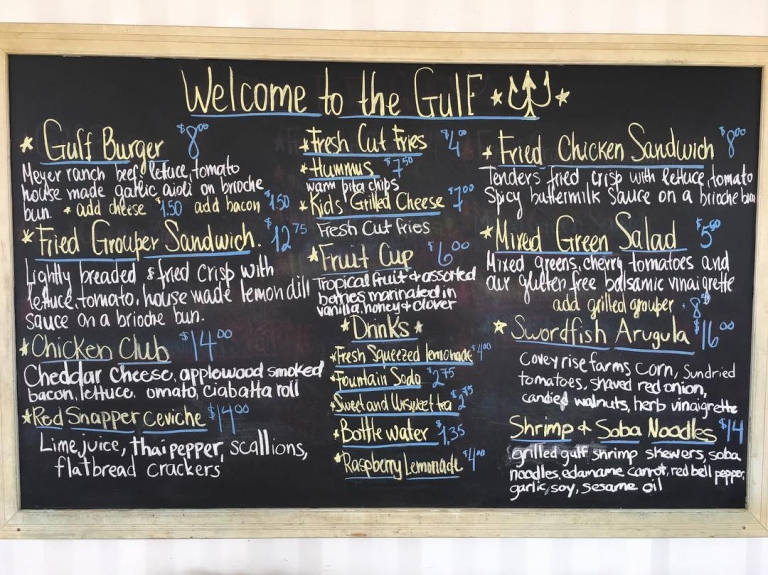 Welcome to the Gulf
Gulf Burger $8.00
Meyer ranch beef, lettuce, tomato
house made garlic aioli on brioche
bun. + add cheese $1.50 add bacon $1.50
Fried Grouper Sandwich. $12.75
Lightly breaded & fried crisp with
lettuce, tomato, house made lemon dill
sauce on a brioche bun.
Chicken Club $14.00
Cheddar cheese, applewood smoked
bacon, lettuce, omato, ciabatta roll
Red Snapper Ceviche $14.00
Lime juice, thai pepper, scallions,
flatbread crackers
Fresh Cut Fries $4.00
Hummus $7.50
warm pita chips
Kids Grilled Cheese $7.00
Fresh Cut fries
Fruit Cup $6.00
Tropical fruit & assorted
berries marinated in
vanilla, honey & clover
Drinks
Fresh Squeezed lemonade $4.00
Fountain Soda $2.75
Sweet and Unsweet tea $2.75
Bottle Water $1.35
Raspberry Lemonade $4.00
Fried Chicken Sandwich $8.00
Tenders fried crisp with lettuce, tomato
Spicy buttermilk sauce on a brioche bun
Mixed Green Salad $5.00
Mixed greens, cherry tomatoes and
our gluten free balsamic vinaigrette
add grilled grouper
Swordfish Arugula $16.00
Covey rise farms corn, sundried
tomatoes, shaved red onion,
candied walnuts, herb vinaigrette
Shrimp & Soba Noodles $14
grilled gulf shrimp skewers, soba
noodles, edamame carrot, red bell pepper,
garlic, soy, sesame oil